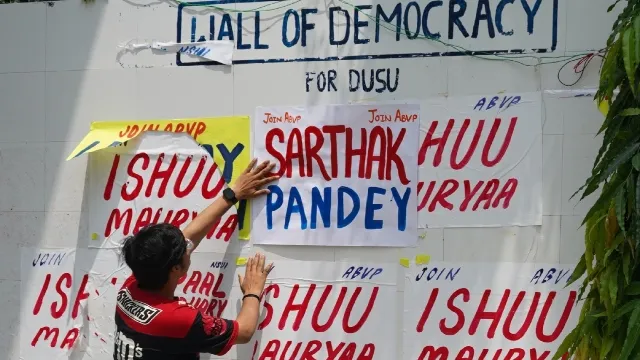 WALL OF DEMOCRACY
NSUI
FOR DUSU
JOIN ABVP
ISHUU
MAURYAA
JOIN ABVP JOIN ABVP
SARTHAK
PANDEY
ABVP
HUU
URYAA
JOIN
ISH
MA
NSUI
PAAL
ABVP
SHUU
AURYAA
JOIN ABVP
ISHUU
MAURYAA